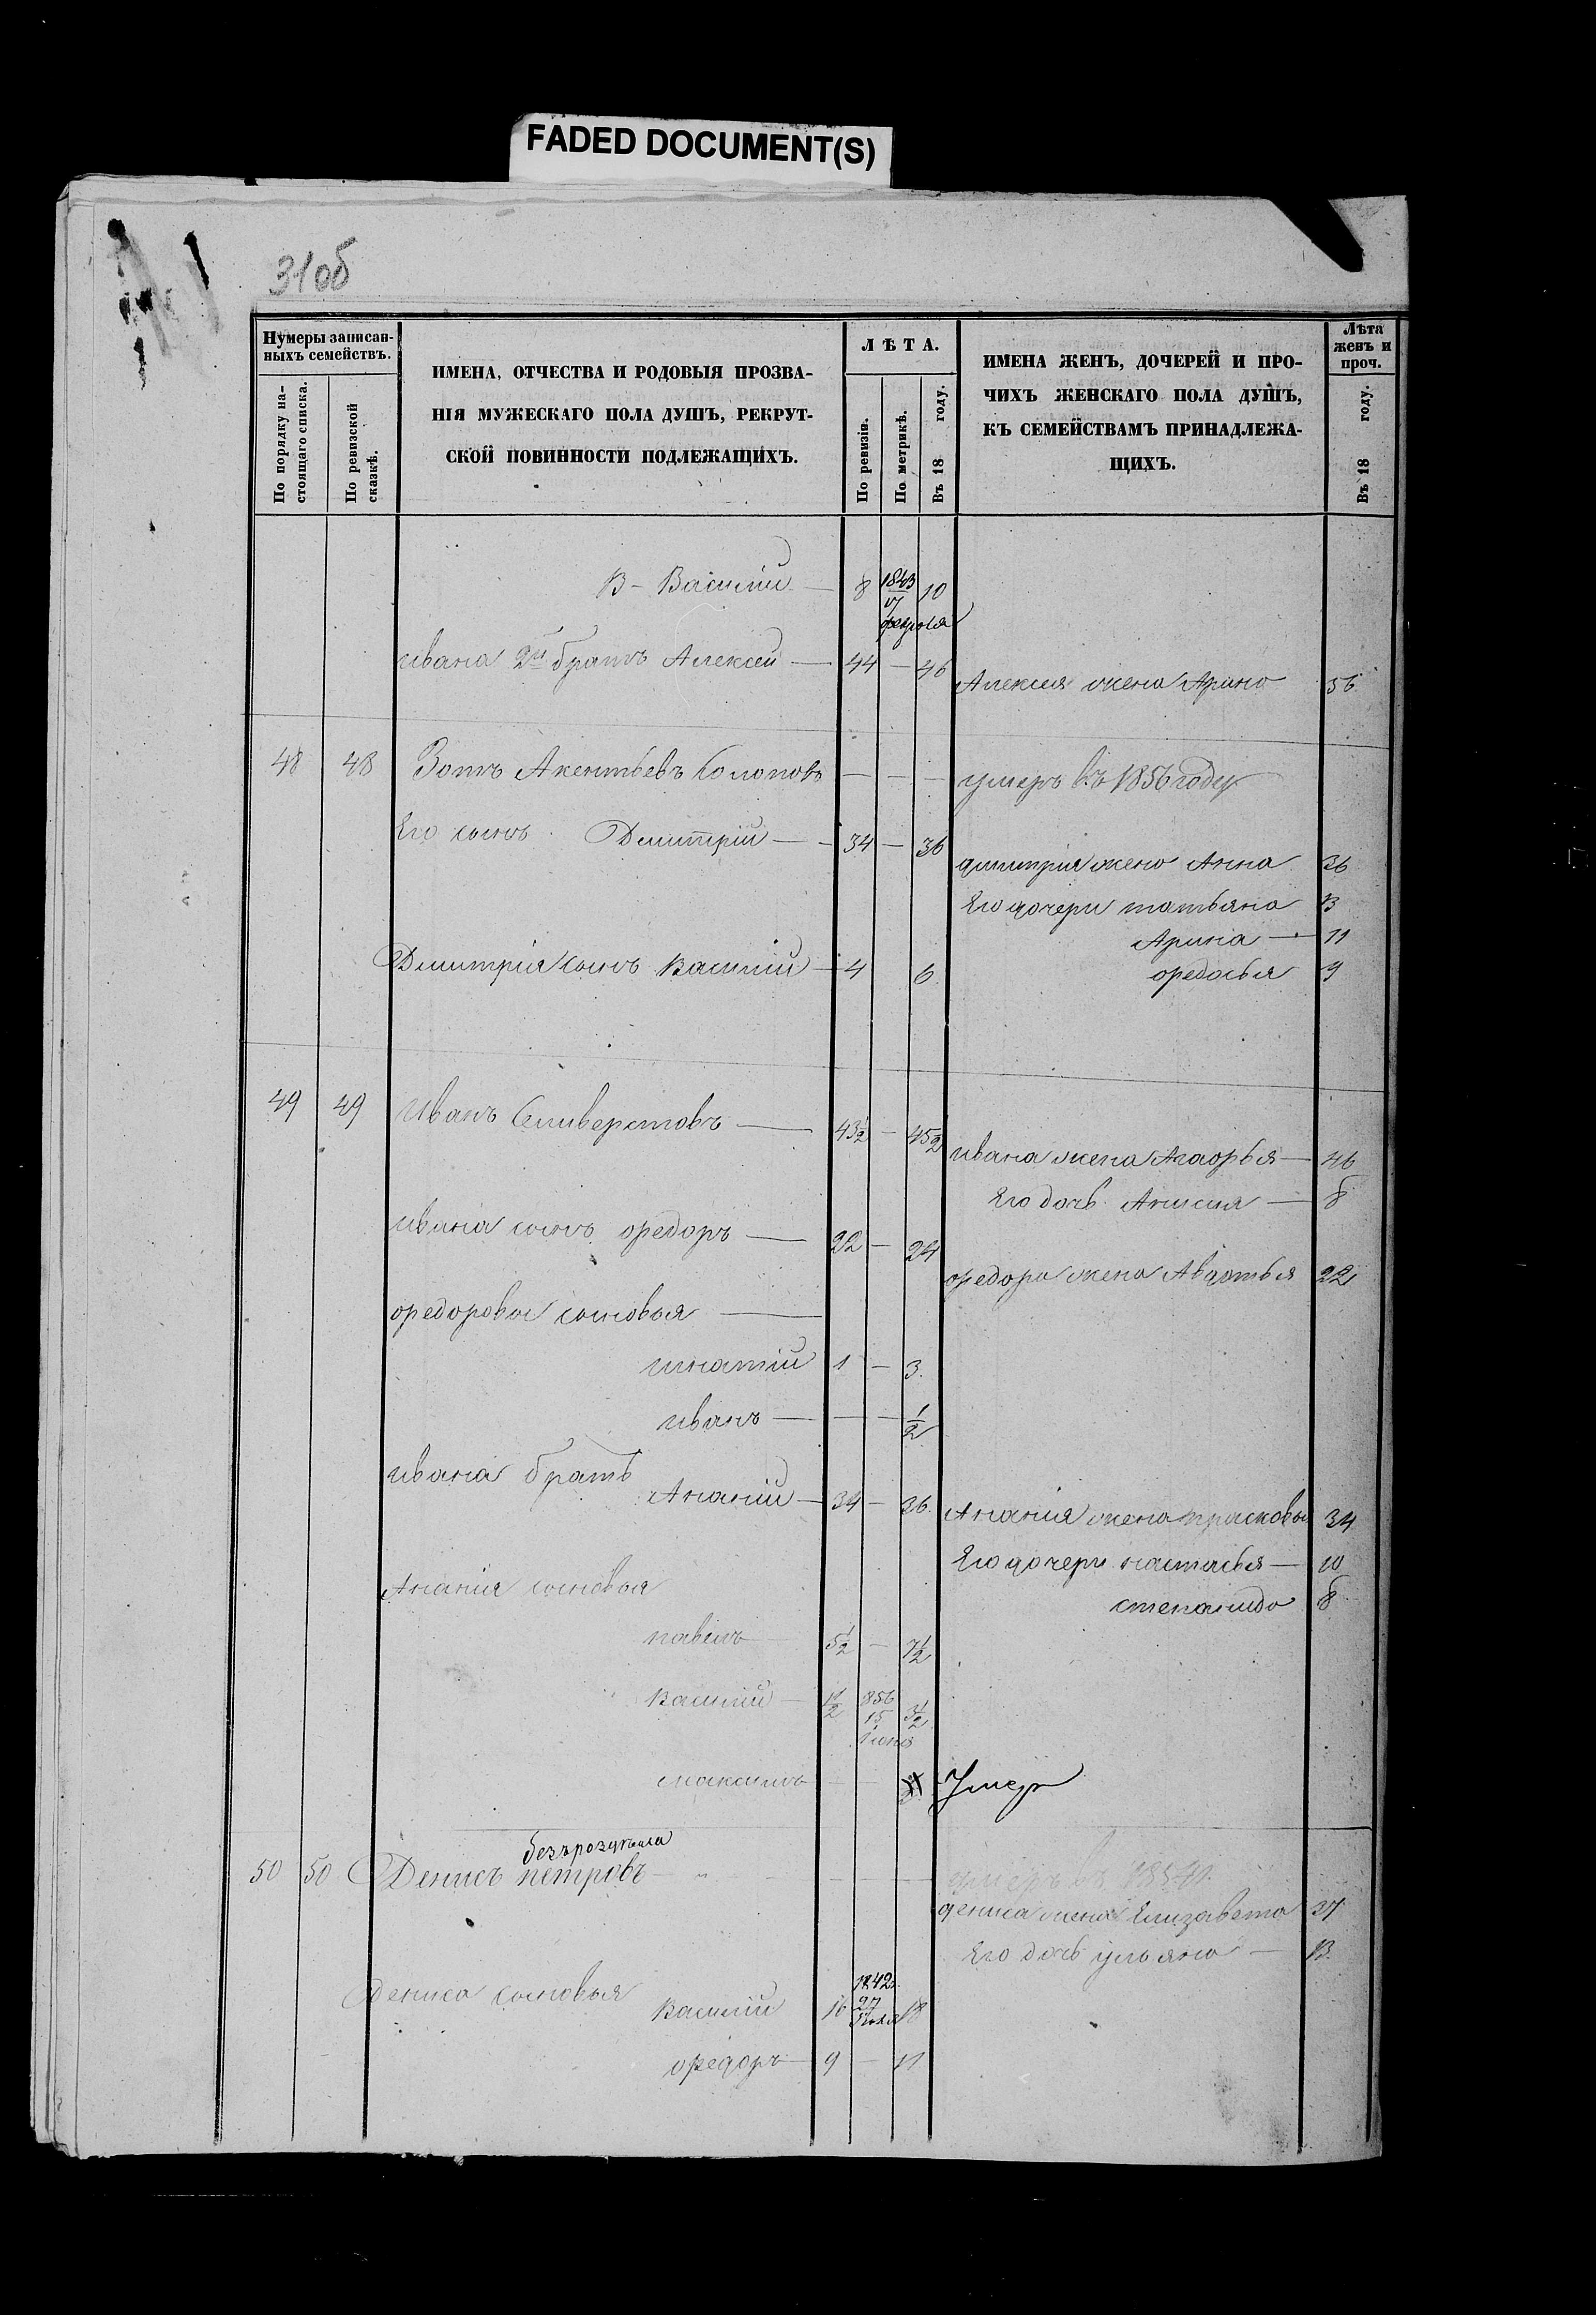 FADED DOCUMENT(S)
31об
Нумеры записан-
ныхъ семействъ.
По порядку на-
стоящаго списка.
По ревизской
сказкѣ.
ИМЕНА, ОТЧЕСТВА И РОДОВЫЯ ПРОЗВА-
НІЯ МУЖЕСКАГО ПОЛА ДУШЪ, РЕКРУТ-
СКОЙ ПОВИННОСТИ ПОДЛЕЖАЩИХЪ.
ЛѢТА.
По ревизіи.
По метрикѣ.
Въ 18 году.
ИМЕНА ЖЕНЪ, ДОЧЕРЕЙ И ПРО-
ЧИХЪ ЖЕНСКАГО ПОЛА ДУШЪ,
КЪ СЕМЕЙСТВАМЪ ПРИНАДЛЕЖА-
ЩИХЪ.
Лѣта
женъ и
проч.
Въ 18 году.
В - Василій — 8 1843 10
февраля
ивана 2й братъ Алексей — 44 — 46
Алексея жена Арина 56
48 48 Зотъ Акентьевъ — — — умеръ въ 1856 году
Его сынъ Дмитрій — 34 — 36
дмитрія жена Анна 36
Его дочери татьяна 13
Арина — 11
Дмитрія сынъ Василій — 4 6
ѳедосья 9
49 49 Иванъ Селиверстовъ — 43½ — 45½
ивана жена Агаѳья — 46
Его дочь Анисия — 8
ивана сынъ ѳедоръ — 22 — 24
ѳедора жена Авдотья 22
ѳедоровы сыновья —
игнатій 1 — 3.
иванъ — — — ½
ивана братъ
Ананій — 34 — 36.
Анания жена прасковья 34
Его дочери настасья — 10
Анания сыновья
степанида 8
павелъ 5½ — 7½
василий — 1½ 856 3½
15
Июня
максимъ — — Умеръ
50 50 Денисъ петровъ — умеръ въ
дениса жена Елизавета 37
Его дочь ульяна — 13.
Дениса сыновья
1842
василій 16 27 18
ѳедоръ — 9 — 11